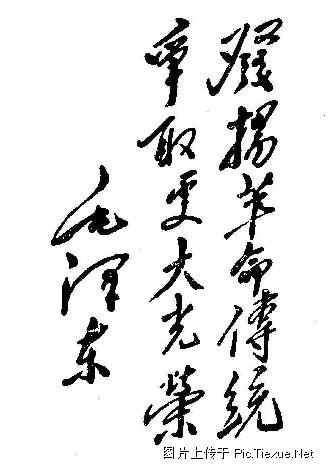 發揚革命傳统
爭取更大光榮
毛泽东
图片上传于 Pic.Tiexue.Net